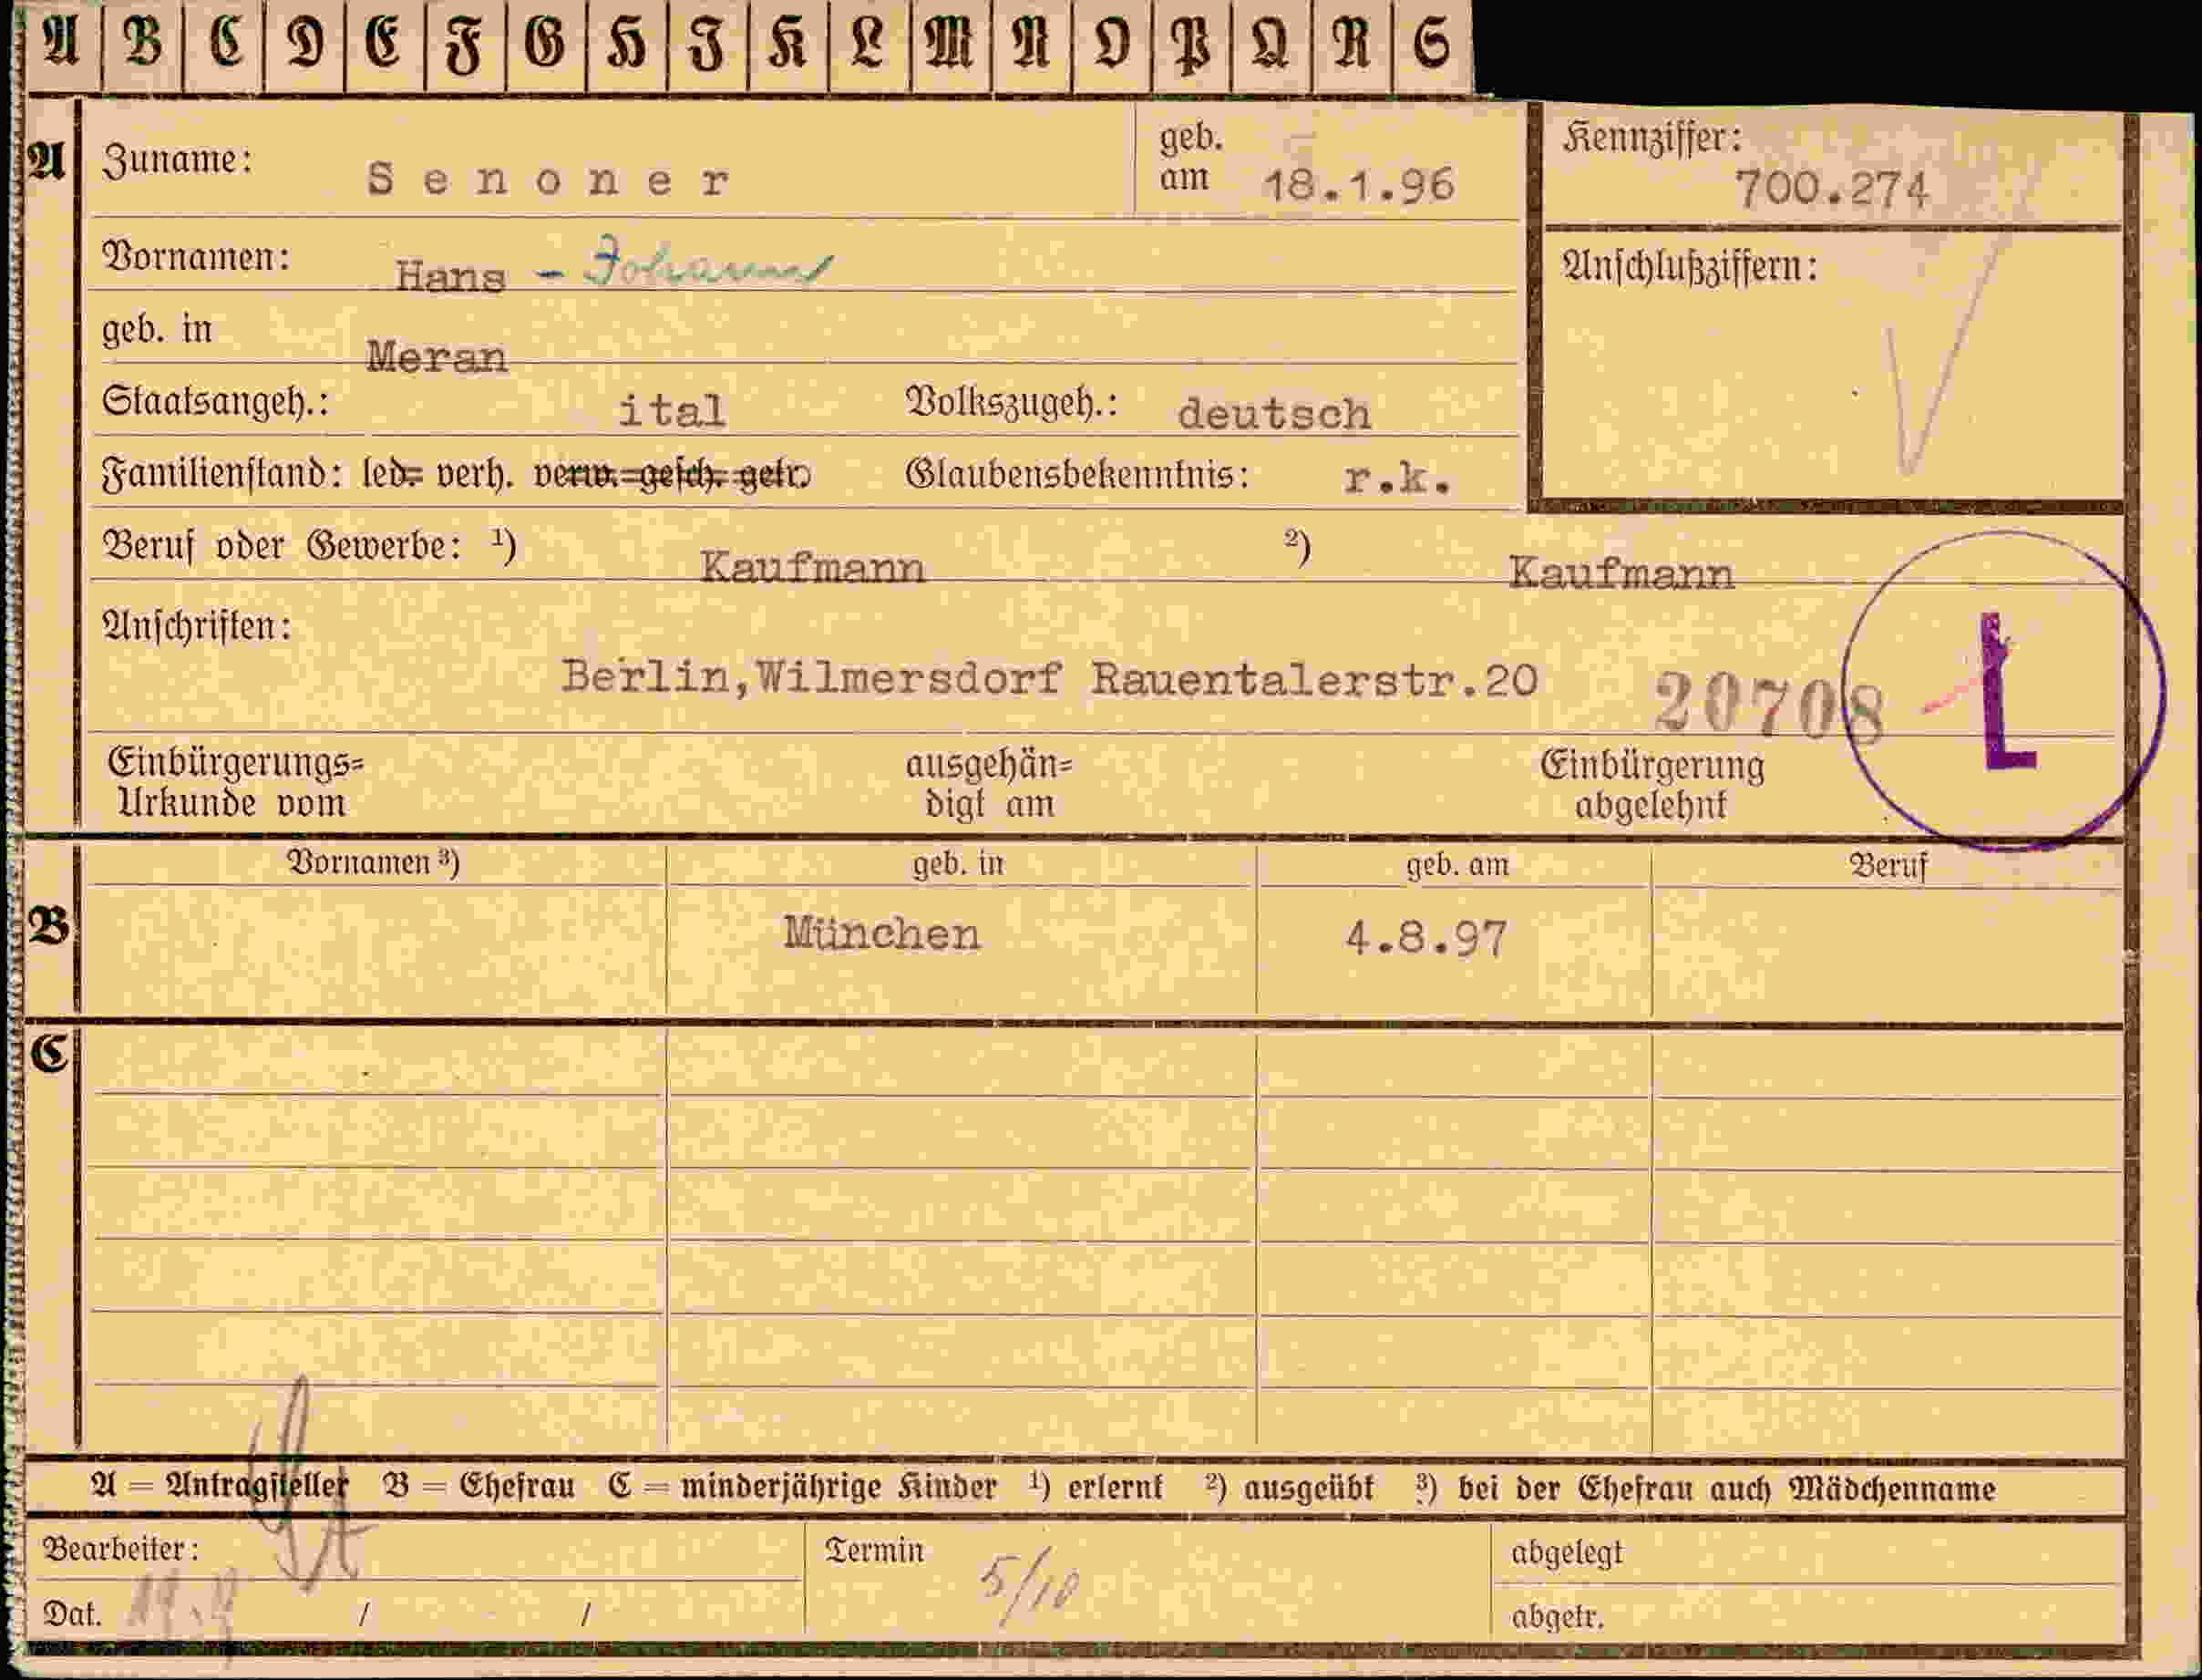 A B C D E F G H J K L M N O P Q R S
A Zuname: Senoner geb. am 18.1.96 Kennziffer: 700.274
Vornamen: Hans - Johann Anschlußziffern:
geb. in Meran
Staatsangeh.: ital Volkszugeh.: deutsch
Familienstand: led. verh. verw. gesch. getr. Glaubensbekenntnis: r.k.
Beruf oder Gewerbe: ¹) Kaufmann ²) Kaufmann
Anschriften:
Berlin,Wilmersdorf Rauentalerstr.20 20708 L
Einbürgerungs= ausgehän= Einbürgerung
Urkunde vom digt am abgelehnt
Vornamen ³) geb. in geb. am Beruf
B München 4.8.97
C
A = Antragsteller B = Ehefrau C = minderjährige Kinder ¹) erlernt ²) ausgeübt ³) bei der Ehefrau auch Mädchenname
Bearbeiter: Termin 5/10 abgelegt
Dat. / / abgetr.